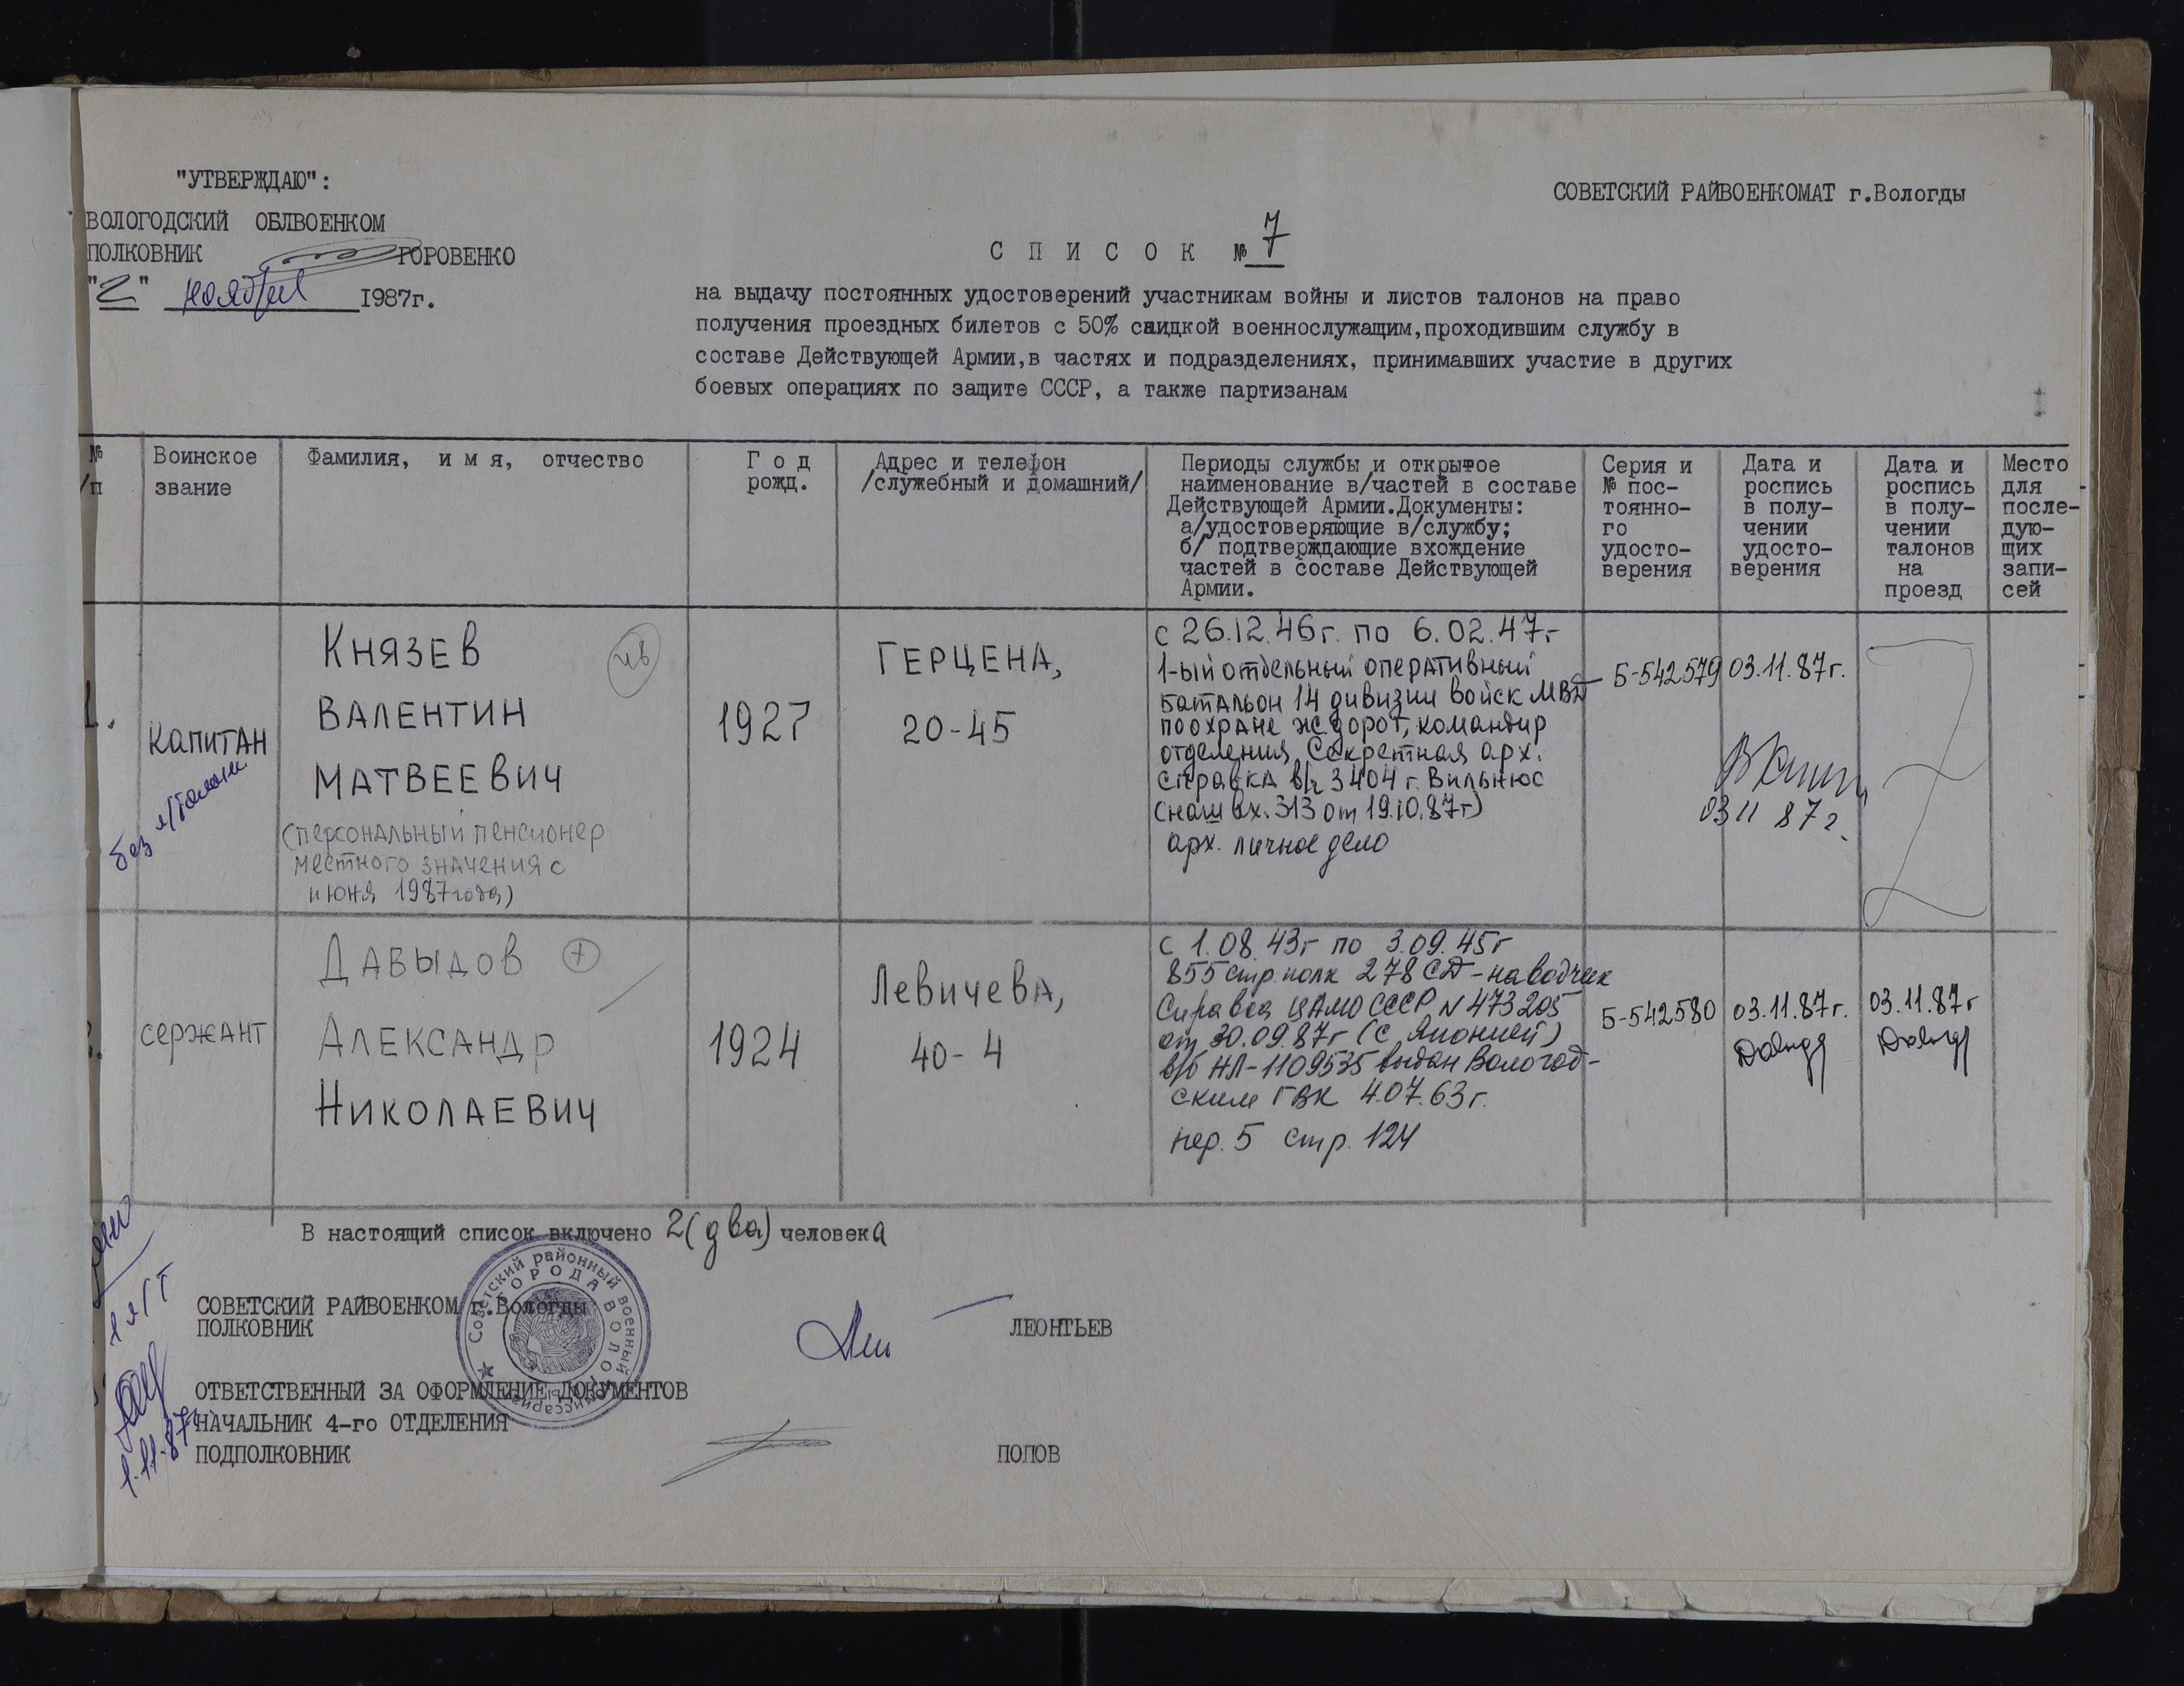 "УТВЕРЖДАЮ":
ВОЛОГОДСКИЙ ОБЛВОЕНКОМ
ПОЛКОВНИК ГОРОВЕНКО
"2" ноября 1987г.
СОВЕТСКИЙ РАЙВОЕНКОМАТ г.Вологды
С П И С О К № 7
на выдачу постоянных удостоверений участникам войны и листов талонов на право
получения проездных билетов с 50% скидкой военнослужащим,проходившим службу в
составе Действующей Армии,в частях и подразделениях, принимавших участие в других
боевых операциях по защите СССР, а также партизанам
№
/п
Воинское
звание
Фамилия, и м я, отчество
Г о д
рожд.
Адрес и телефон
/служебный и домашний/
Периоды службы и открытое
наименование в/частей в составе
Действующей Армии.Документы:
а/удостоверяющие в/службу;
б/ подтверждающие вхождение
частей в составе Действующей
Армии.
Серия и
№ пос-
тоянно-
го
удосто-
верения
Дата и
роспись
в полу-
чении
удосто-
верения
Дата и
роспись
в полу-
чении
талонов
на
проезд
Место
для
после-
дую-
щих
запи-
сей
1.
капитан
без л/талон.
Князев
Валентин
Матвеевич
(персональный пенсионер
местного значения с
июня 1987года)
ив
1927
Герцена,
20-45
с 26.12.46г. по 6.02.47г
1-ый отдельный оперативный
батальон 14 дивизии войск МВД
по охране ж.дорог, командир
отделения, Секретная арх.
справка в/ч 3404 г. Вильнюс
(наш вх. 313 от 19.10.87г)
арх. личное дело
Б-542579
03.11.87г.
03 11 87г.
2.
сержант
Давыдов +
Александр
Николаевич
1924
Левичева,
40-4
с 1.08.43г по 3.09.45г
855 стр. полк 278 СД - наводчик
Справка ЦАМО СССР N 473205
от 30.09.87г (с Японией)
в/б НЛ-1109535 выдан Вологод-
ским ГВК 4.07.63г.
пер. 5 стр. 124
Б-542580
03.11.87г.
03.11.87г
В настоящий список включено 2(два) человека
СОВЕТСКИЙ РАЙВОЕНКОМ г.Вологды
ПОЛКОВНИК
ЛЕОНТЬЕВ
Советский районный военный комиссариат
ГОРОДА ВОЛОГДЫ
ОТВЕТСТВЕННЫЙ ЗА ОФОРМЛЕНИЕ ДОКУМЕНТОВ
НАЧАЛЬНИК 4-го ОТДЕЛЕНИЯ
ПОДПОЛКОВНИК
ПОПОВ
1 л/т